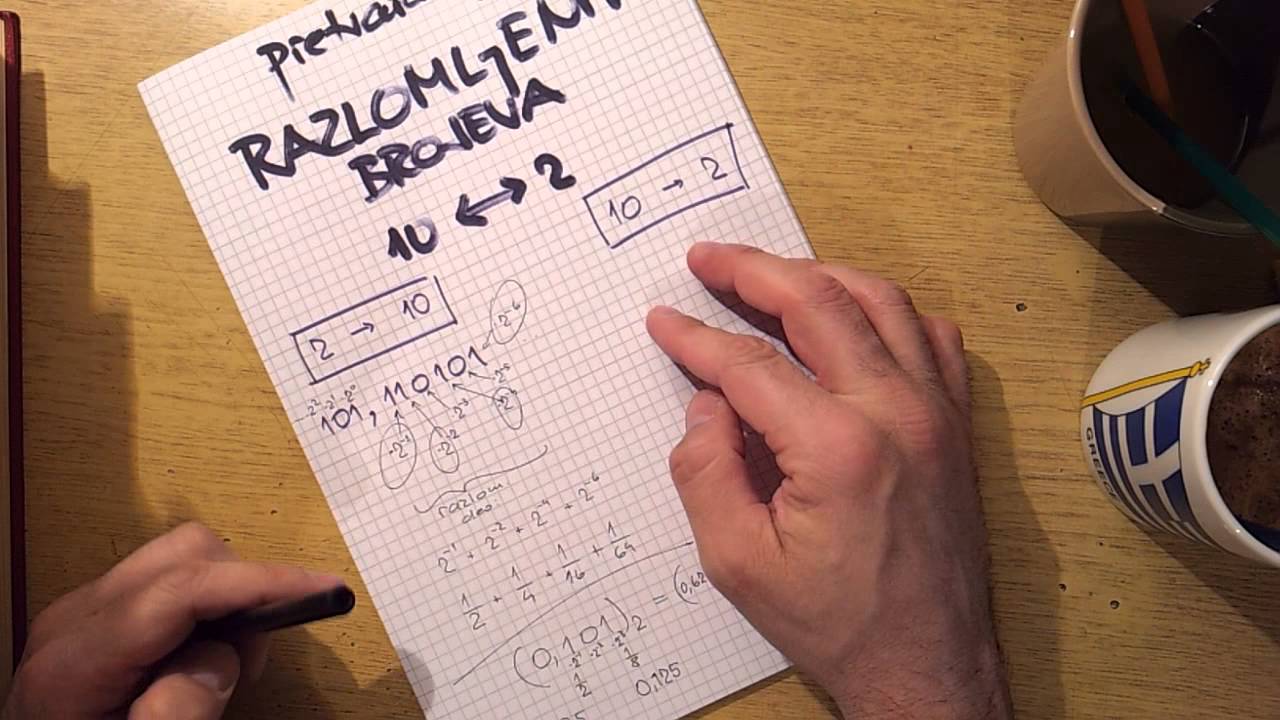 RAZLOMLJENI
BROJEVA
10 ↔ 2
10 → 2
2 → 10
·2² ·2¹ ·2⁰
101,110101
·2⁻¹ ·2⁻² ·2⁻³ ·2⁻⁵ ·2⁻⁶
razlom
deo
2⁻¹ + 2⁻² + 2⁻⁴ + 2⁻⁶
1/2 + 1/4 + 1/16 + 1/64
(0,101)₂ = (0,62
·2⁻¹ ·2⁻² ·2⁻³
1/2 1/8
0,125
GREECE